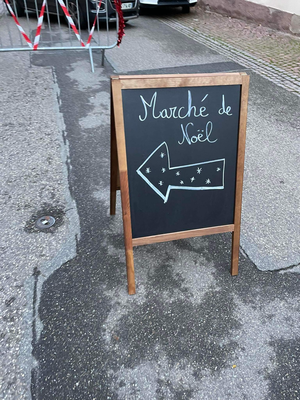 Marché de
Noël